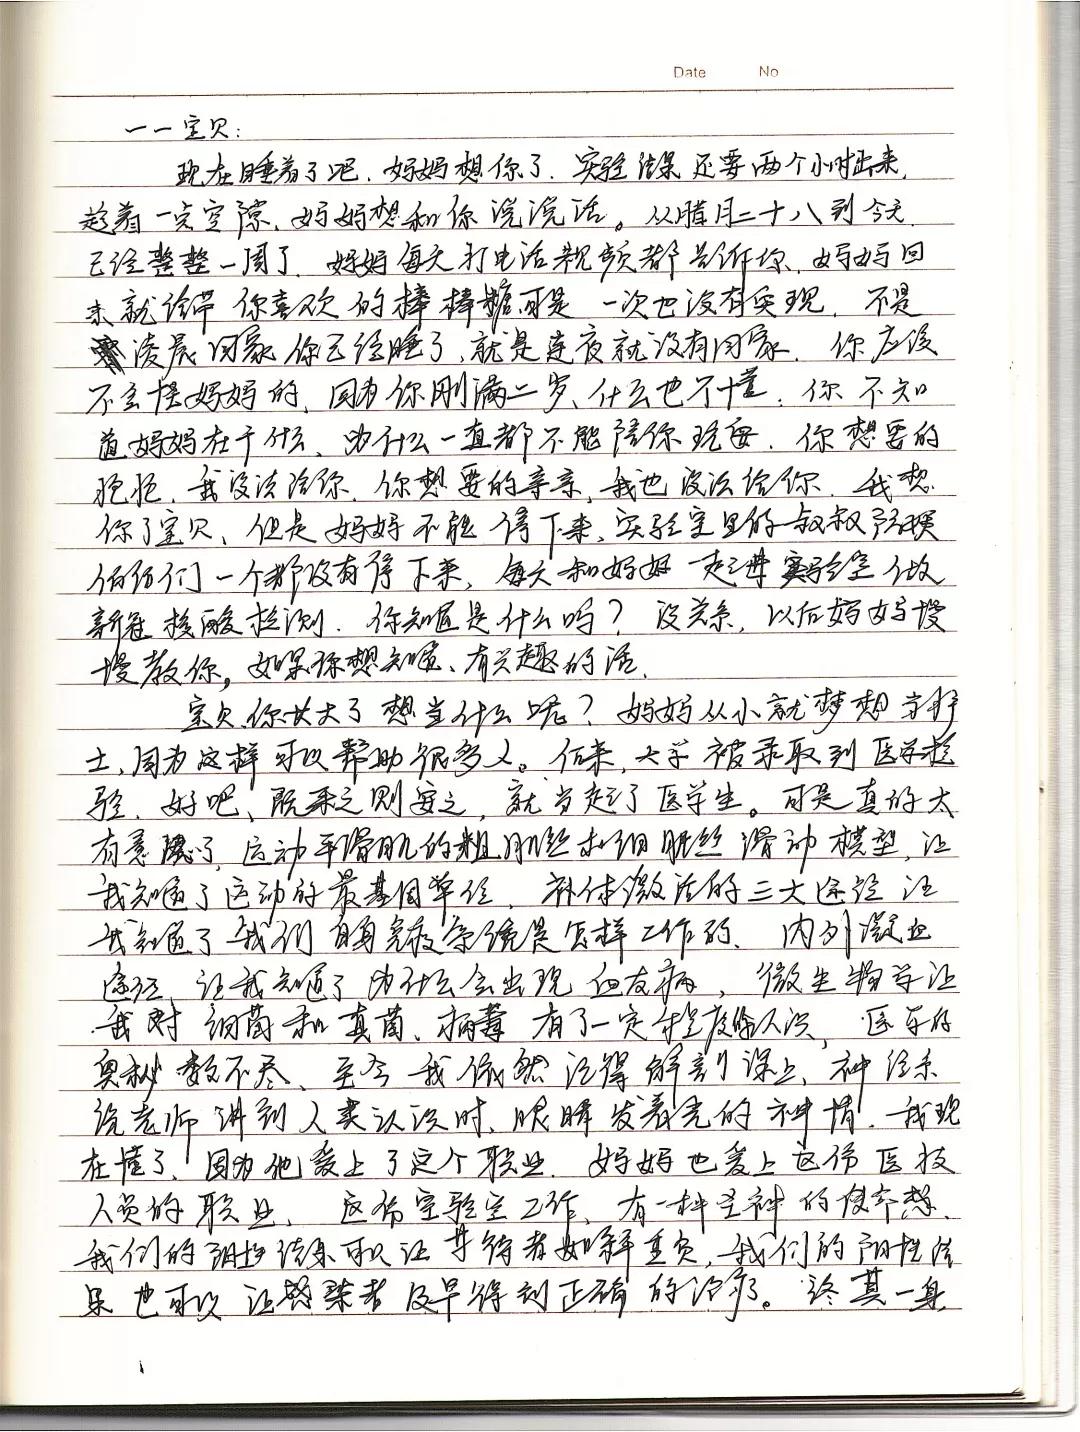 Date No
一一宝贝:
现在睡着了吧，妈妈想你了，实验结果还要两个小时出来，
趁着一点空隙，妈妈想和你说说话。从腊月二十八到今天，
已经整整一周了，妈妈每天打电话视频都告诉你，妈妈回
来就给带你喜欢的棒棒糖可是一次也没有实现，不是
凌晨回家你已经睡了，就是连夜就没有回家，你应该
不会怪妈妈的，因为你刚满二岁、什么也不懂，你不知
道妈妈在干什么、为什么一直都不能陪你玩耍，你想要的
抱抱，我没法给你，你想要的亲亲，我也没法给你，我想
你了宝贝，但是妈妈不能停下来，实验室里的叔叔阿姨
伯伯们一个都没有停下来，每天和妈妈一起进实验室做
新冠核酸检测，你知道是什么吗？没关系，以后妈妈慢
慢教你，如果你想知道、有兴趣的话，
宝贝，你长大了想当什么呢？妈妈从小就梦想当护
士，因为这样可以帮助很多人。后来，大学被录取到医学检
验，好吧，既来之则安之，就当起了医学生。可是真的太
有意思了，运动平滑肌的粗肌丝和细肌丝滑动模型，让
我知道了运动的最基因单位，补体激活的三大途径让
我知道了我们自身免疫系统是怎样工作的，内外凝血
途径，让我知道了为什么会出现血友病，微生物学让
我对细菌和真菌、病毒有了一定程度的认识，医学的
奥秘数不尽，至今我依然记得解剖课上，神经系
统老师讲到人类认识时，眼睛发着光的神情，我现
在懂了，因为他爱上了这个职业，妈妈也爱上这份医技
人员的职业，这份实验室工作，有一种圣神的使命感，
我们的阴性结果可以让等待者如释重负，我们的阳性结
果也可以让感染者及早得到正确的治疗。终其一身，